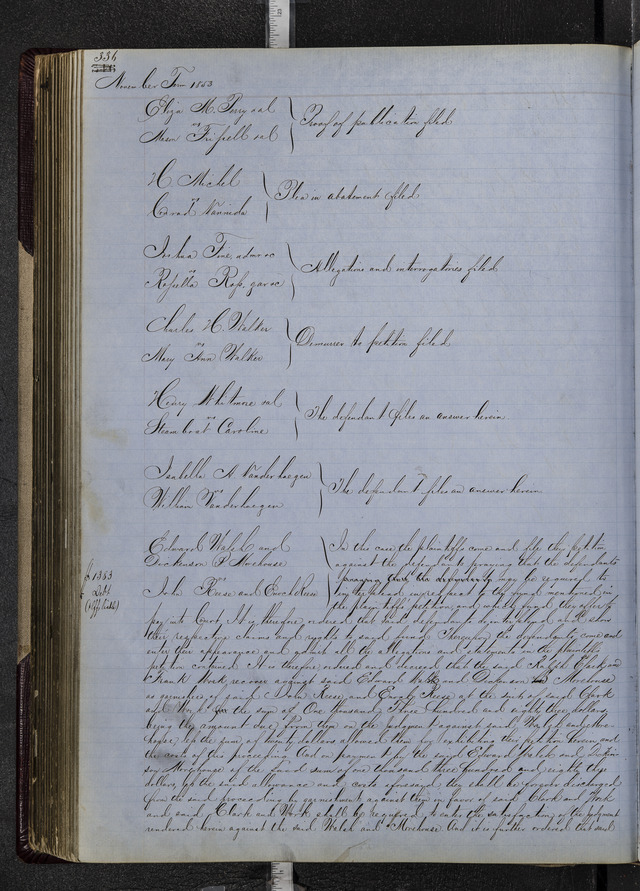 334
November Term 1853
Eliza M. Perry et al
vs
Trissell et al
Proof of publication filed
H Michel
vs
Conrad
Plea in abatement filed
Joshua Fine, admr &c
vs
Rosella Ross, gar &c
Allegations and interrogatories filed
Charles H. Walker
vs
Mary Ann Walker
Demurrer to petition filed
Henry Whitmore et al
vs
Steam boat Caroline
The defendant files an answer herein
Isabella A Vanderhaegen
vs
William Vanderhaegen
The defendant files an answer herein
Edward Walsh and
Dickinson P Morehouse
vs
John Reese and Enoch Reese
1383
Debt
In this case the plaintiffs come and file their petition
against the defendants praying that the defendants
may be required to
in respect of the fund mentioned in
the plaintiffs petition and which fund they offer to
pay into Court, It is therefore ordered that said defendants do and show
their respective claims and rights to said fund. Thereupon the defendants come and
enter their appearance and admit all the allegations and statements in the plaintiffs
petition contained. It is therefore ordered and decreed that the said Ralph Clark and
Frank Work recover against said Edward Walsh and Dickinson P Morehouse
as garnishees of said John Reese and Enoch Reese at the suit of said Clark
and Work for the sum of One thousand Three hundred and eighty three dollars,
being the amount due from them on the judgment against said Walsh and More-
house, less the sum of twenty dollars allowed them for exhibiting their petition herein, and
the costs of this proceeding. And on payment by the said Edward Walsh and Dickin-
son Morehouse of the said sum of one thousand three hundred and eighty three
dollars, less the said allowance and costs aforesaid, they shall be forever discharged
from the said proceeding in garnishment against them in favor of said Clark and Work
and said Clark and Work shall be required to enter the satisfaction of the judgment
rendered herein against the said Walsh and Morehouse And it is further ordered that said